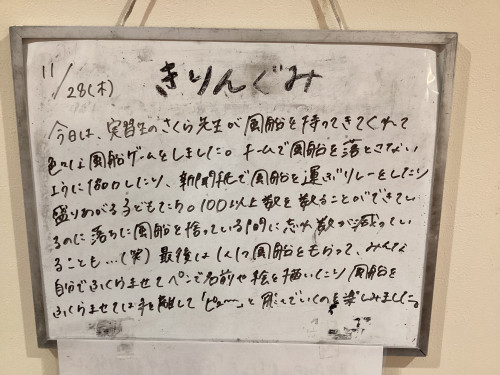 11/28(木) きりんぐみ
今日は、実習生のさくら先生が風船を持ってきてくれて
色々な風船ゲームをしました。チームで風船を落とさない
ように協力したり、新聞紙で風船を運ぶリレーをしたり
盛りあがる子どもたち。100以上数を数えることができてい
るのに落ちた風船を拾っている間に忘れ数が減ってい
ることも…(笑) 最後は1人1つ風船をもらって、みんな
自分でふくらませてペンで名前や絵を描いたり風船を
ふくらませては手を離して「ピューー」と飛んでいくのを楽しみました。